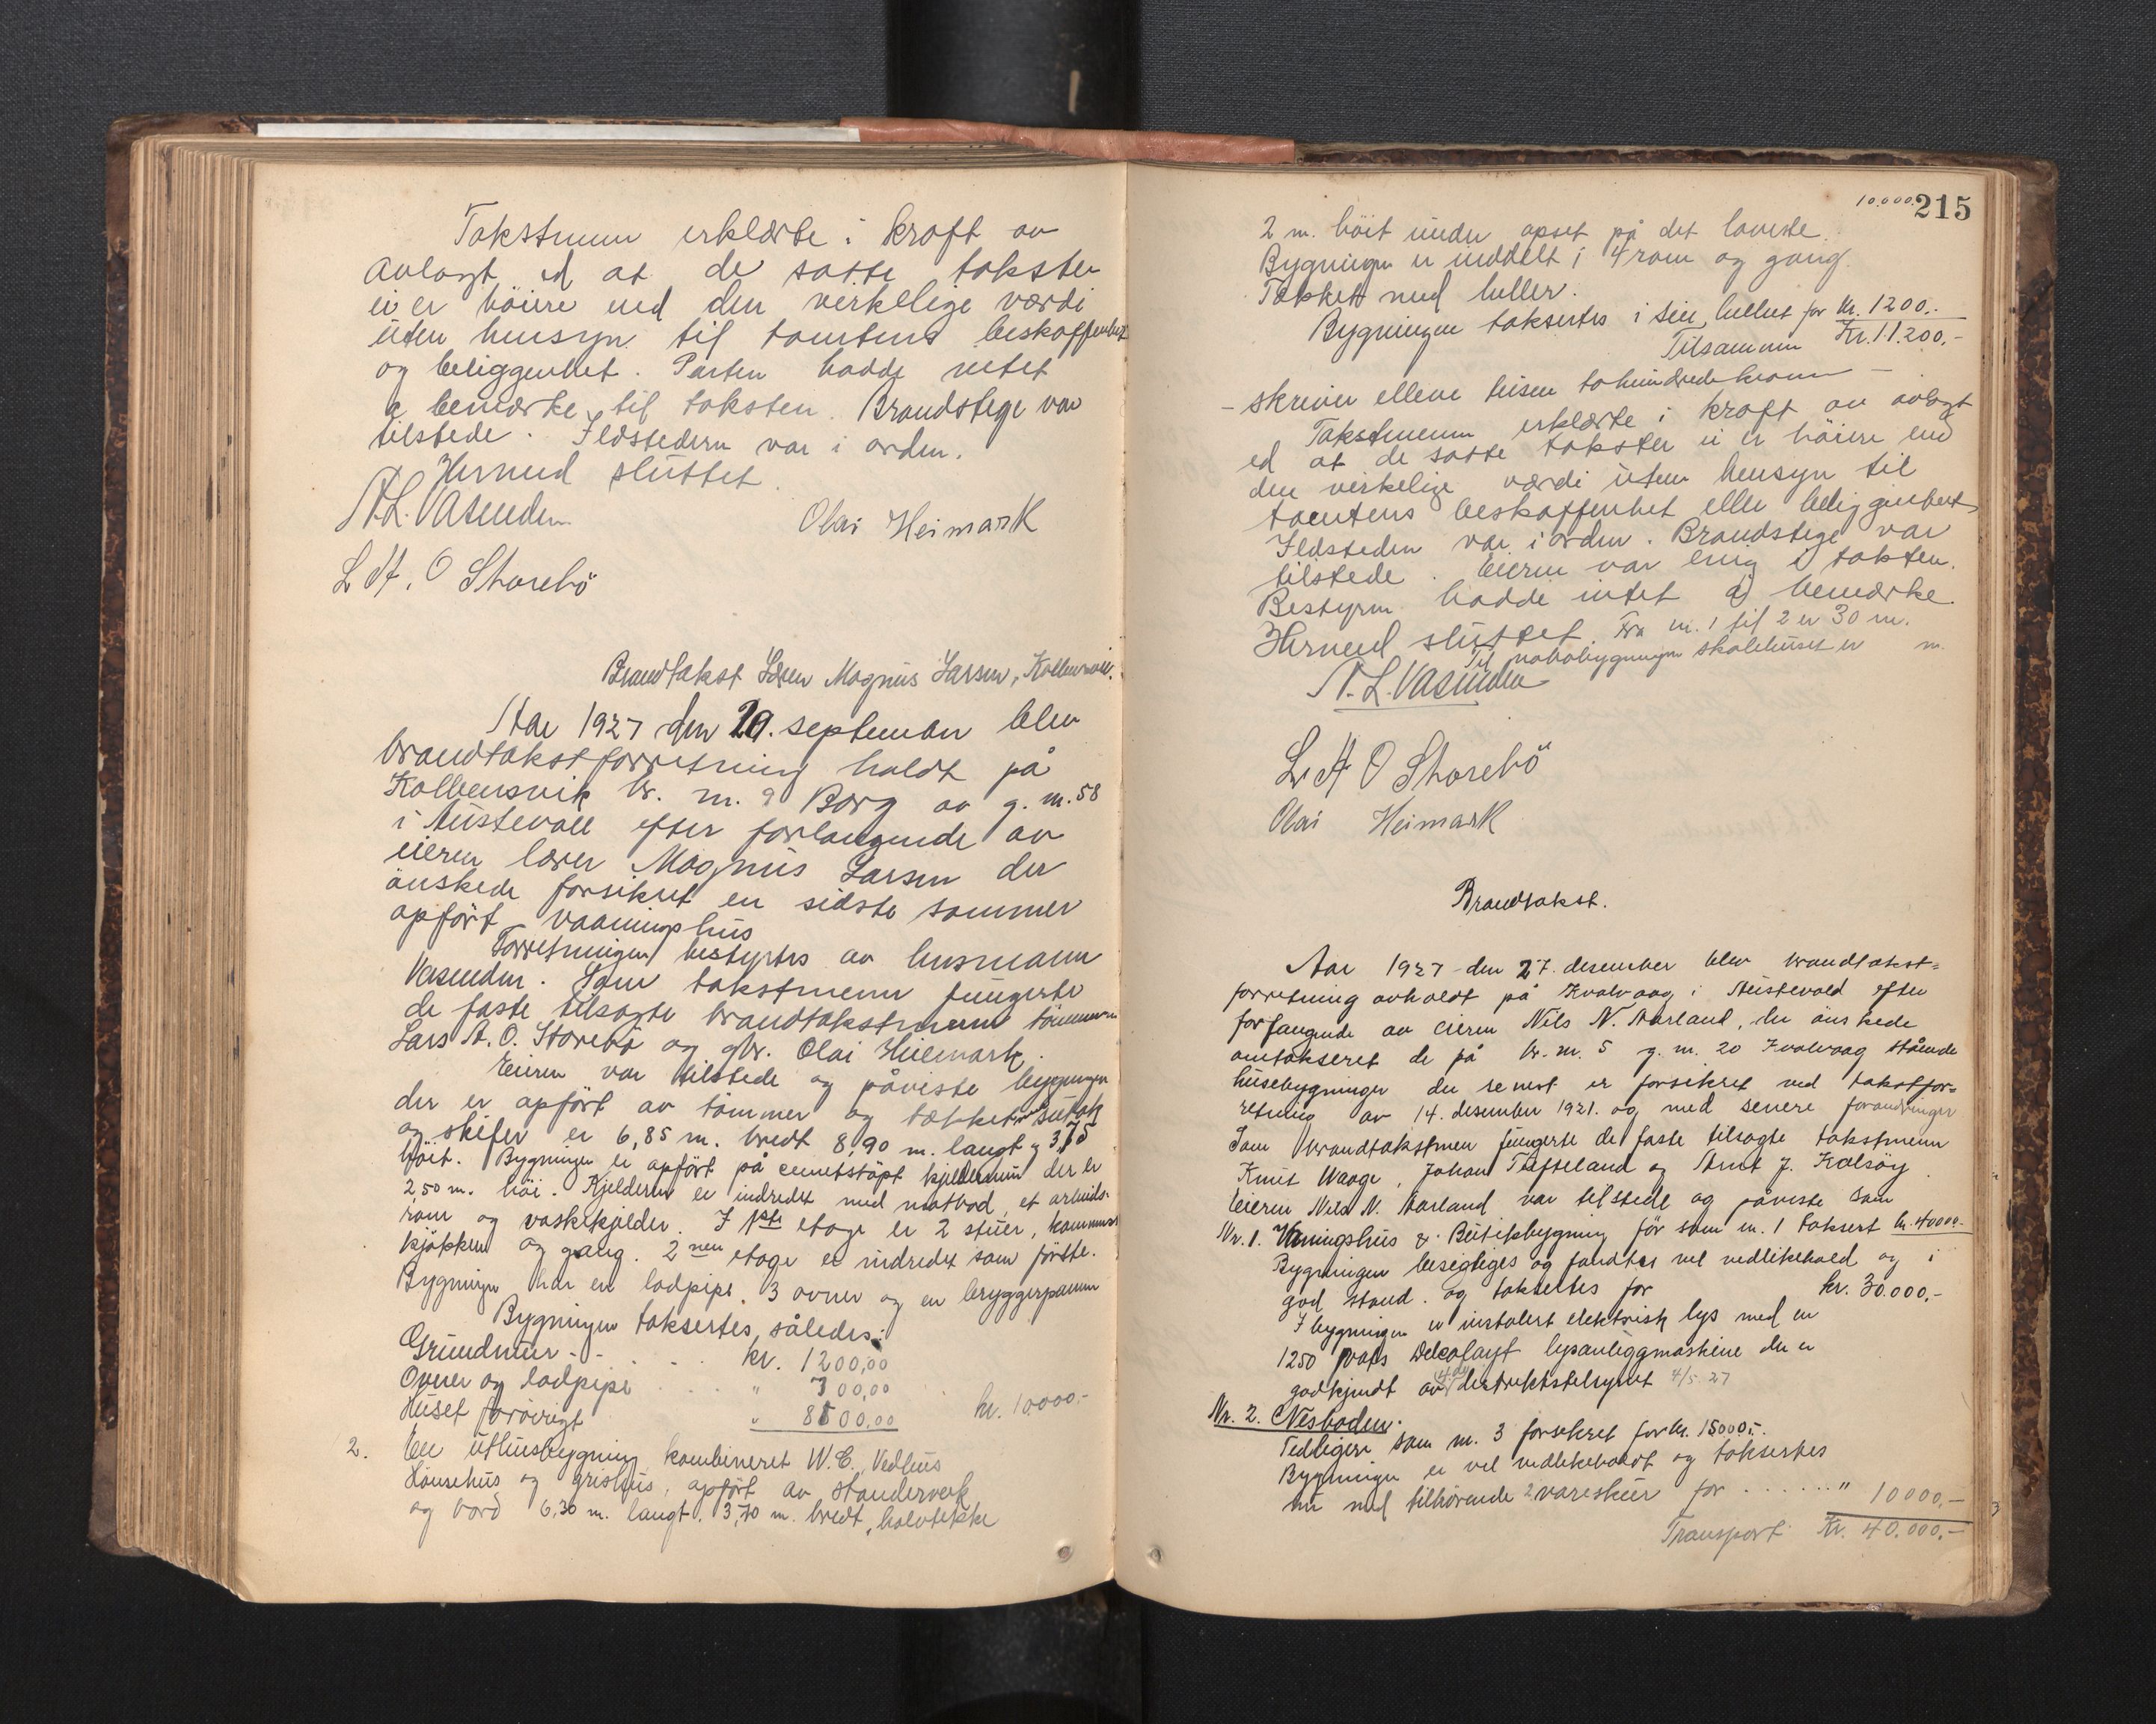 Takstmenn erklærte i kraft av
avlagt ed at de satte takster
ei er höiere end den virkelige værdi
uten hensyn til tomtens beskaffenhet
og beliggenhet. Parten hadde intet
a bemærke til taksten. Brandstege var
tilstede. Ildstedern var i orden.
Hermed sluttet.
N. L. Vasenden
Olai Heimark
L A. O Storebö
Brandtakst Lærer Magnus Larsen, Kolbensvik.
Aar 1927 den 20. september blev
brandtakstforretning holdt på
Kolbensvik br. nr. 9 Borg av g. nr. 58
i Austevoll efter forlangende av
eieren lærer Magnus Larsen der
önskede forsikret en sidste sommer
opfört vaaningshus
Forretningen bestyrtes av lensmann
Vasenden. Som takstmenn fungerte
de faste tilsagte brandtakstmenn tömmerm
Lars A. O. Storebö og gbr. Olai Heimark.
Eieren var tilstede og påviste bygningen
der er opfört av tömmer og tækket m sutak
og skifer er 6,85 m. bredt 8,90 m. langt og 3,75
höit. Bygningen er opfört på cementstöpt kjeldermur der er
2,50 m. höi. Kjelderen er indredet med matbod, et arbeids-
rom og vaskekjelder. I 1ste etage er 2 stuer, kammers
kjökken og gang. 2nen etage er indredet som förste.
Bygningen har en lodpipe, 3 ovner og en bryggerpanne
Bygningen taksertes således:
Grundmur - - . . . kr. 1200,00
Ovner og lodpipe . . . . " 300,00
Huset forövrigt " 8500,00 kr. 10000.-
2. En uthusbygning kombineret W.C., Vedhus
Hönsehus og grishus, opfört av standerverk
og bord 6,30 m. langt. 3,70 m. bredt, halvtekke
10.000. 215
2 m. höit under opset på det laveste.
Bygningen er inddelt i 4 rom og gang.
Tækket med heller.
Bygningen taksertes i sin helhet for kr. 1200.-
Tilsammen Kr. 11.200.-
- skriver elleve tusen tohundrede kroner -
Takstmenn erklærte i kraft av avlagt
ed at de satte takster ei er höiere end
den virkelige værdi uten hensyn til
tomtens beskaffenhet eller beliggenhet
Ildsteden var i orden. Brandstege var
tilstede. Eieren var enig i taksten.
Bestyrern hadde intet a bemærke.
Hermed sluttet. Fra nr. 1 til 2 er 30 m.
Til nabobygningen skolehuset er m.
N. L. Vasenden
L. A O Storebö
Olai Heimark
Brandtakst.
Aar 1927 den 27. desember blev brandtakst=
forretning avholdt på Kvalvaag i Austevold efter
forlangende av eieren Nils N. Aarland, der önskede
omtakseret de på br. nr. 5 g. nr. 20 Kvalvaag stående
husebygninger der senest er forsikret ved takstfor=
retning av 14. desember 1921. og med senere forandringer
Som brandtakstmen fungerte de faste tilsagte takstmenn
Knut Waage, Johan Tufteland og Arnt J. Kalsöy
Eieren Nils N. Aarland var tilstede og påviste som
Nr. 1. Vaaningshus & Butikbygning för som nr. 1 taksert kr. 40000.-
Bygningen besigtiges og fandtes vel vedlikehold og i
god stand. og taksertes for kr. 30.000.-
I bygningen er instalert elektrisk lys med en
1250 watts Delcolayt lysanleggmaskine der er
godkjendt av distriktstilsynet 4/5. 27
Nr. 2. Nesboden.
Tidligere som nr. 3 forsikret for kr. 15000.-
Bygningen er vel vedlikeholdt og taksertes
nu med tilhörende 2 vareskur for . . . . . . " 10000.-
Transport Kr. 40.000.-